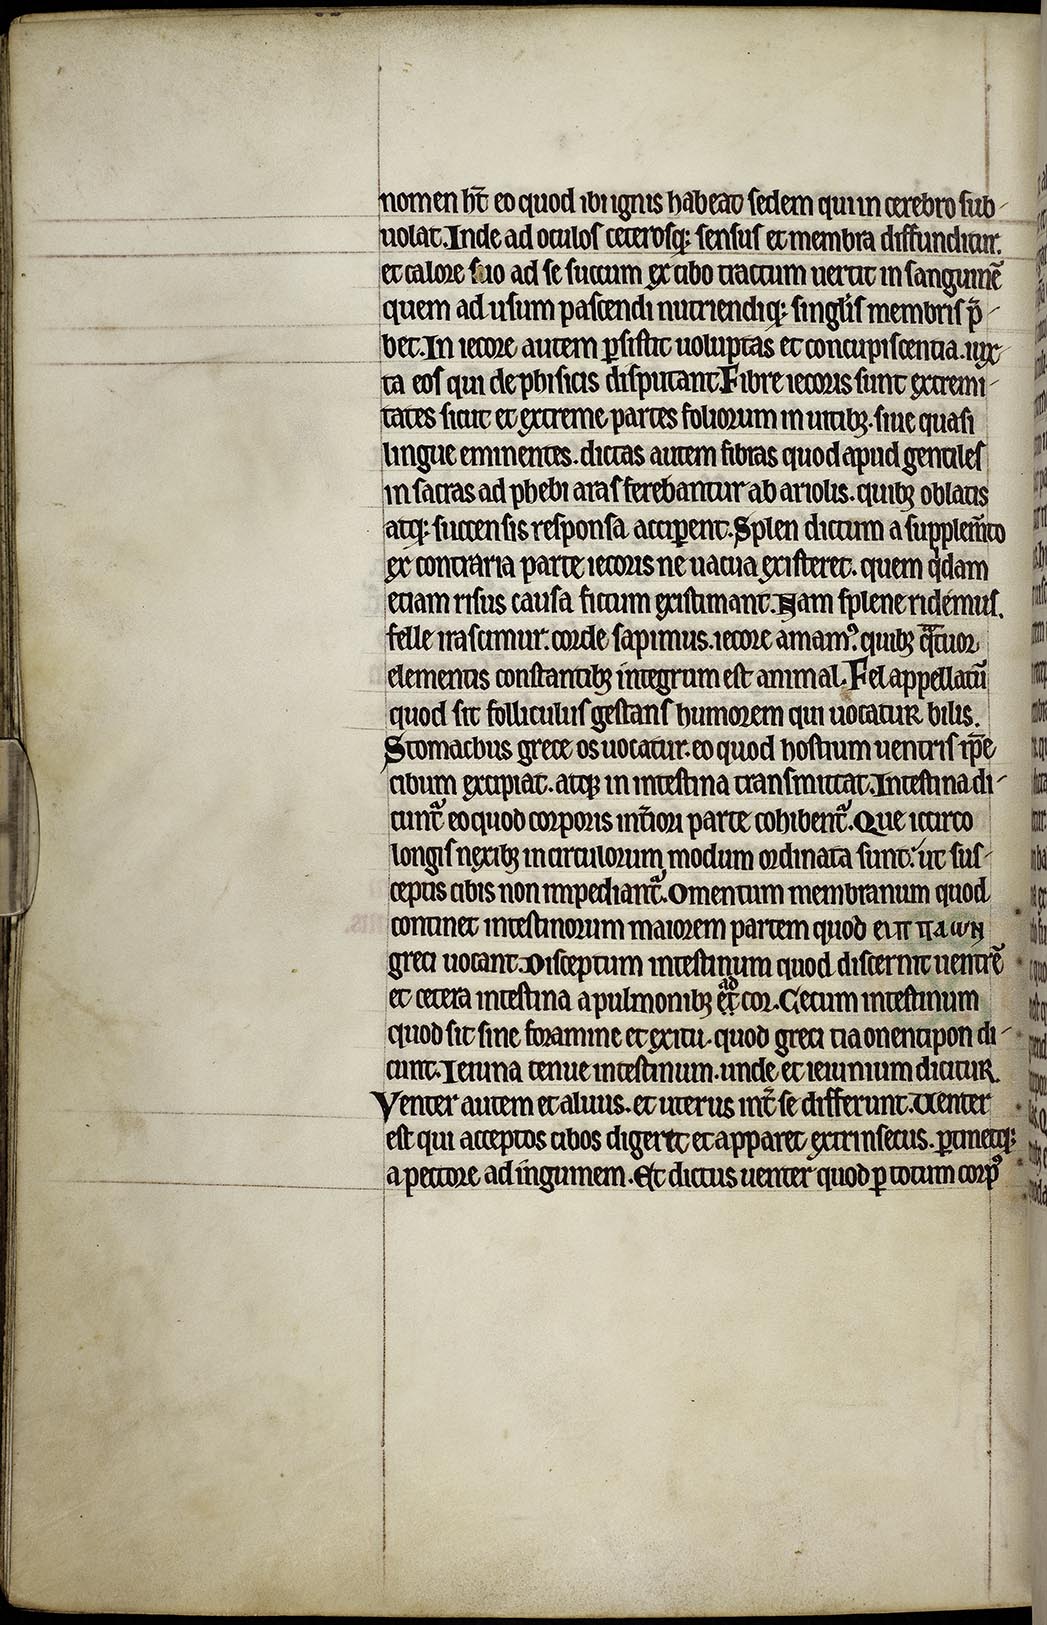 nomen ht̄ eo quod ibi ignis habeat sedem qui in cerebro sub-
uolat. Inde ad oculos ceterosq; sensus et membra diffunditur.
et calore suo ad se succum ex cibo tractum uertit in sanguinē
quem ad usum pascendi nutriendiq; singl̓is membris p̄-
bet. In iecore autem ꝑsistit uoluptas et concupiscentia. iux-
ta eos qui de phisicis disputant. Fibre iecoris sunt extremi-
tates sicut et extreme partes foliorum in uitibꝫ. siue quasi
lingue eminentes. dictas autem fibras quod apud gentiles
in sacras ad phebi aras ferebantur ab ariolis. quibꝫ oblatis
atq; succensis responsa acciꝑent. Splen dictum a supplem̄to
ex contraria parte iecoris ne uacua existeret. quem qͥdam
etiam risus causa fictum existimant. Nam splene ridemus.
felle irascimur. corde sapimus. iecore amamꝰ. quibꝫ qᷓtuor
elementis constantibꝫ integrum est animal. Fel appellatū
quod sit folliculus gestans humorem qui uocatur bilis.
Stomachus grece os uocatur. eo quod hostium uentris ip̄e
cibum excipiat. atqꝫ in intestina transmittat. Intestina di-
cunt᷑ eo quod corporis int̓iori parte cohibent᷑. Que iccirco
longis nexibꝫ in circulorum modum ordinata sunt. ut sus-
ceptis cibis non impediant᷑. Omentum membranum quod
continet intestinorum maiorem partem quod ειπ πλωη
greci uocant. Disceptum intestinum quod discernit uentrē
et cetera intestina a pulmonibꝫ et ad cor. Cecum intestinum
quod sit sine foramine et exitu. quod greci tiaonentipon di-
cunt. Ieiuna tenue intestinum. unde et ieiunium dicitur.
Venter autem et aluus. et uterus int̓ se differunt. Uenter
est qui acceptos cibos digerit et apparet extrinsecus. ꝑtinetq;
a pectore ad inguinem. Et dictus uenter quod ꝑ totum corpꝰ